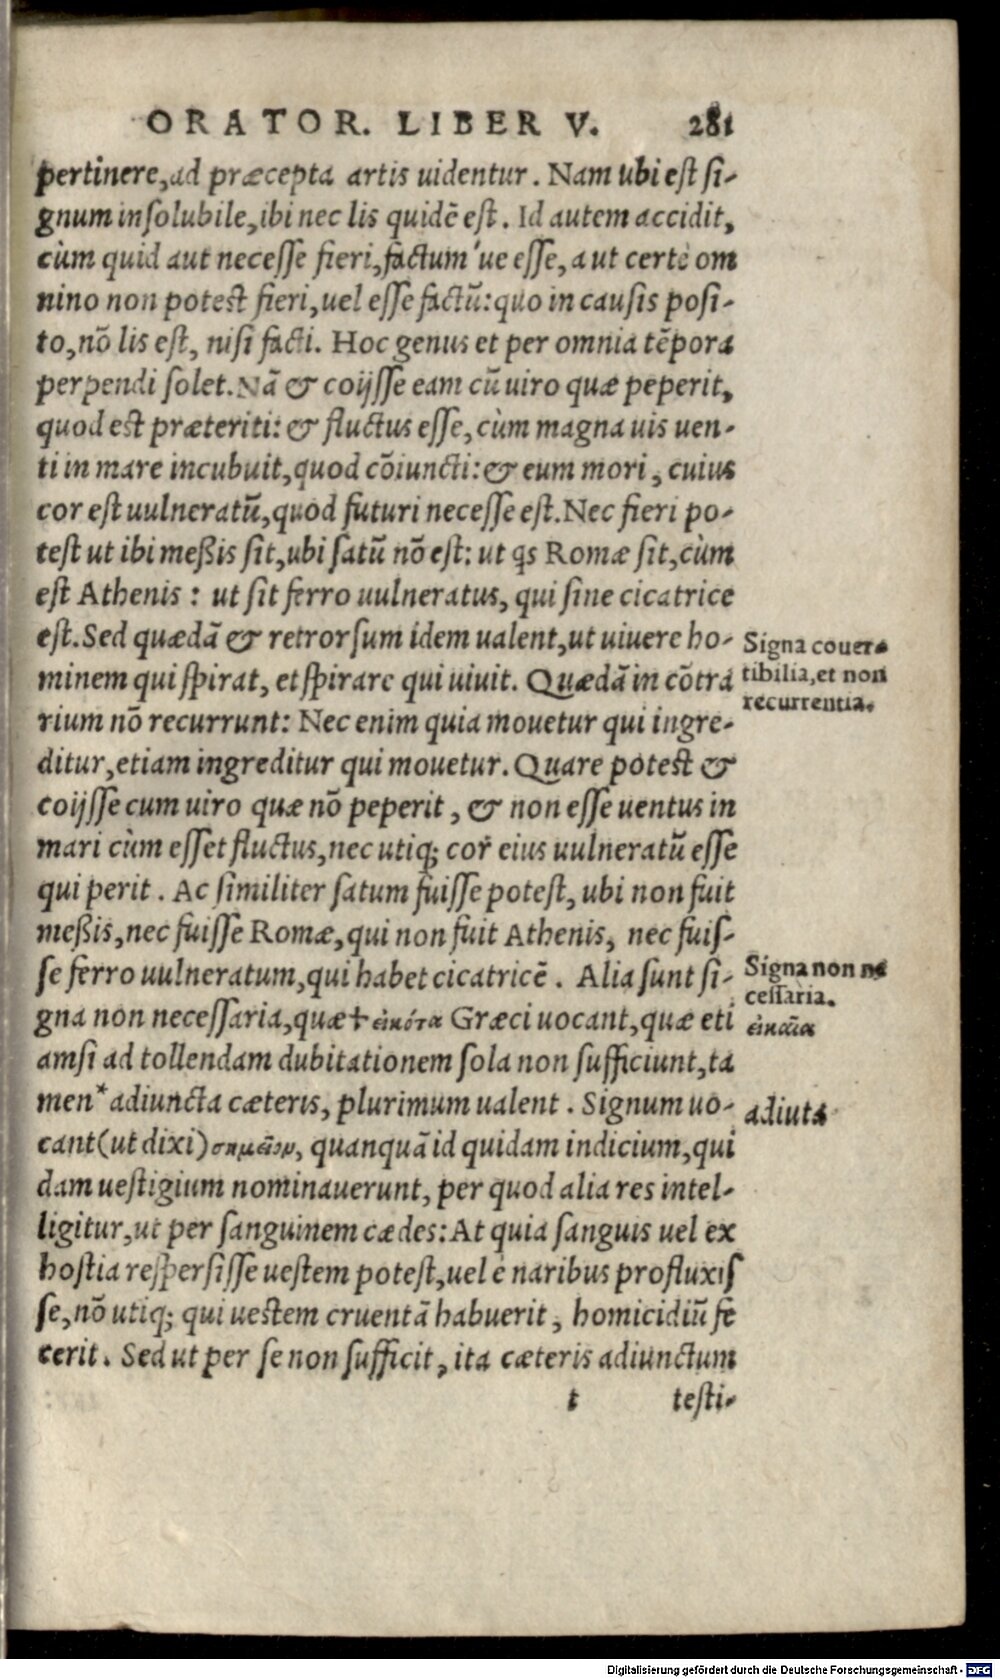 ORATOR. LIBER V. 281
pertinere, ad præcepta artis uidentur. Nam ubi est si-
gnum insolubile, ibi nec lis quidē est. Id autem accidit,
cùm quid aut necesse fieri, factum 've esse, aut certè om
nino non potest fieri, uel esse factū: quo in causis posi-
to, nō lis est, nisi facti. Hoc genus et per omnia tēpora
perpendi solet. Nā & coijsse eam cū uiro quæ peperit,
quod est præteriti: & fluctus esse, cùm magna uis uen-
ti in mare incubuit, quod cōiuncti: & eum mori, cuius
cor est uulneratū, quod futuri necesse est. Nec fieri po-
test ut ibi meßis sit, ubi satū nō est: ut qs Romæ sit, cùm
est Athenis: ut sit ferro uulneratus, qui sine cicatrice
est. Sed quædā & retrorsum idem ualent, ut uiuere ho-
minem qui spirat, et spirare qui uiuit. Quædā in cōtra
rium nō recurrunt: Nec enim quia mouetur qui ingre-
ditur, etiam ingreditur qui mouetur. Quare potest &
coijsse cum uiro quæ nō peperit, & non esse uentus in
mari cùm esset fluctus, nec utiq; cor eius uulneratū esse
qui perit. Ac similiter satum fuisse potest, ubi non fuit
meßis, nec fuisse Romæ, qui non fuit Athenis, nec fuis-
se ferro uulneratum, qui habet cicatricē. Alia sunt si-
gna non necessaria, quæ † εἰκότα Græci uocant, quæ eti
amsi ad tollendam dubitationem sola non sufficiunt, ta
men * adiuncta cæteris, plurimum ualent. Signum uo-
cant (ut dixi) σημεῖον, quanquā id quidam indicium, qui
dam uestigium nominauerunt, per quod alia res intel-
ligitur, ut per sanguinem cædes: At quia sanguis uel ex
hostia respersisse uestem potest, uel è naribus profluxis
se, nō utiq; qui uestem cruentā habuerit, homicidiū fe
cerit. Sed ut per se non sufficit, ita cæteris adiunctum
t testi-
Signa couer-
tibilia, et non
recurrentia.
Signa non ne
cessaria.
εἰκαῖα
adiuta
Digitalisierung gefördert durch die Deutsche Forschungsgemeinschaft - DFG